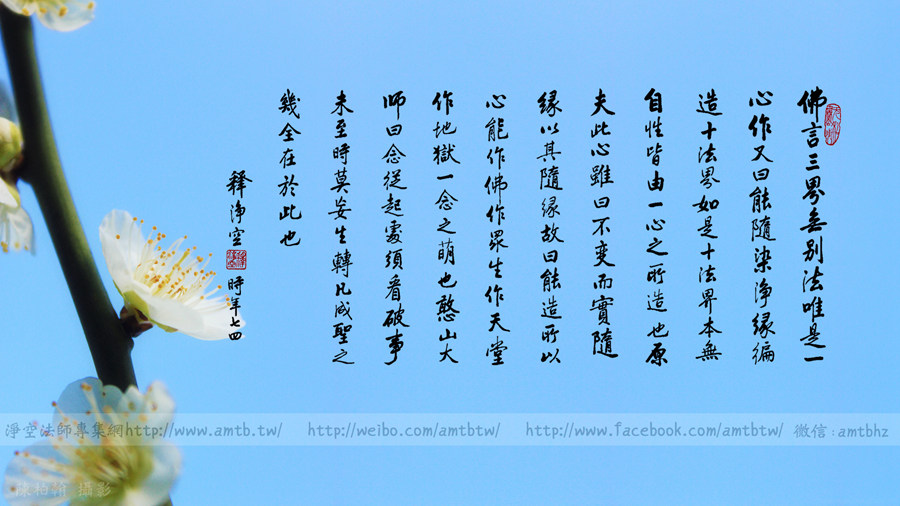 佛言三界無別法唯是一
心作又曰能隨染淨緣徧
造十法界如是十法界本無
自性皆由一心之所造也原
夫此心雖曰不变而實隨
緣以其隨緣故曰能造所以
心能作佛作眾生作天堂
作地獄一念之萌也憨山大
師曰念從起處須看破事
未至時莫妄生轉凡成聖之
幾全在於此也
釋淨空 時年七四
淨空法師專集網http://www.amtb.tw/ http://weibo.com/amtbtw/ http://www.facebook.com/amtbtw/ 微信:amtbhz
陳柏翰 攝影